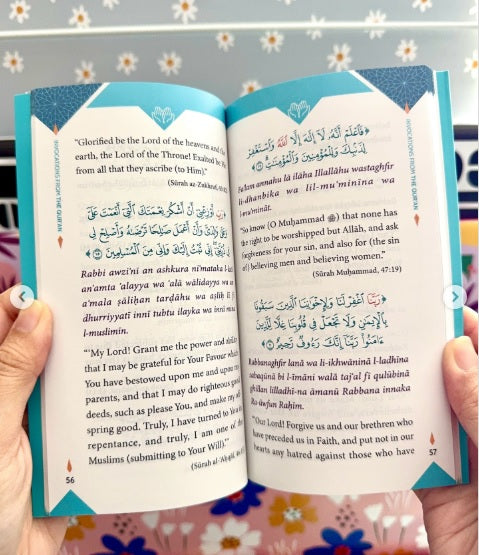 "Glorified be the Lord of the heavens and the
earth, the Lord of the Throne! Exalted be He
from all that they ascribe (to Him)."
(Sûrah az-Zukhruf,
رَبِّ أَوْزِعْنِيٓ أَنْ أَشْكُرَ نِعْمَتَكَ ٱلَّتِيٓ أَنْعَمْتَ عَلَيَّ
وَعَلَىٰ وَٰلِدَيَّ وَأَنْ أَعْمَلَ صَٰلِحًا تَرْضَىٰهُ وَأَصْلِحْ لِي
فِي ذُرِّيَّتِيٓ إِنِّي تُبْتُ إِلَيْكَ وَإِنِّي مِنَ ٱلْمُسْلِمِينَ
Rabbi awzi'ni an ashkura ni'mataka l-latî
an'amta 'alayya wa 'alâ wâlidayya wa an
a'mala ṣâliḥan tarḍâhu wa aṣliḥ lî fî
dhurriyyatî innî tubtu ilayka wa innî mina
l-muslimin.
"'My Lord! Grant me the power and ability
that I may be grateful for Your Favour which
You have bestowed upon me and upon my
parents, and that I may do righteous good
deeds, such as please You, and make my off-
spring good. Truly, I have turned to You in
repentance, and truly, I am one of the
Muslims (submitting to Your Will).'"
(Sûrah al-Aḥqâf,
56
INVOCATIONS FROM THE QUR'AN
﴿فَٱعْلَمْ أَنَّهُۥ لَآ إِلَٰهَ إِلَّا ٱللَّهُ وَٱسْتَغْفِرْ
لِذَنۢبِكَ وَلِلْمُؤْمِنِينَ وَٱلْمُؤْمِنَٰتِ﴾
Fa'lam annahu lâ ilâha Illallâhu wastaghfir
li-dhanbika wa lil-mu'minîna wa
l-mu'minât.
"So know (O Muḥammad ﷺ) that none has
the right to be worshipped but Allâh, and ask
forgiveness for your sin, and also for (the sin
of) believing men and believing women."
(Sûrah Muḥammad, 47:19)
﴿رَبَّنَا ٱغْفِرْ لَنَا وَلِإِخْوَٰنِنَا ٱلَّذِينَ سَبَقُونَا
بِٱلْإِيمَٰنِ وَلَا تَجْعَلْ فِي قُلُوبِنَا غِلًّا لِّلَّذِينَ
ءَامَنُوا۟ رَبَّنَآ إِنَّكَ رَءُوفٌ رَّحِيمٌ﴾
Rabbanaghfir lanâ wa li-ikhwâninâ l-ladhîna
sabaqûnâ bi l-îmâni walâ taj'al fî qulûbinâ
ghillan lilladhî-na âmanû Rabbana innaka
Ra-ûwfun Raḥîm.
"Our Lord! Forgive us and our brethren who
have preceded us in Faith, and put not in our
hearts any hatred against those who have
57
INVOCATIONS FROM THE QUR'AN